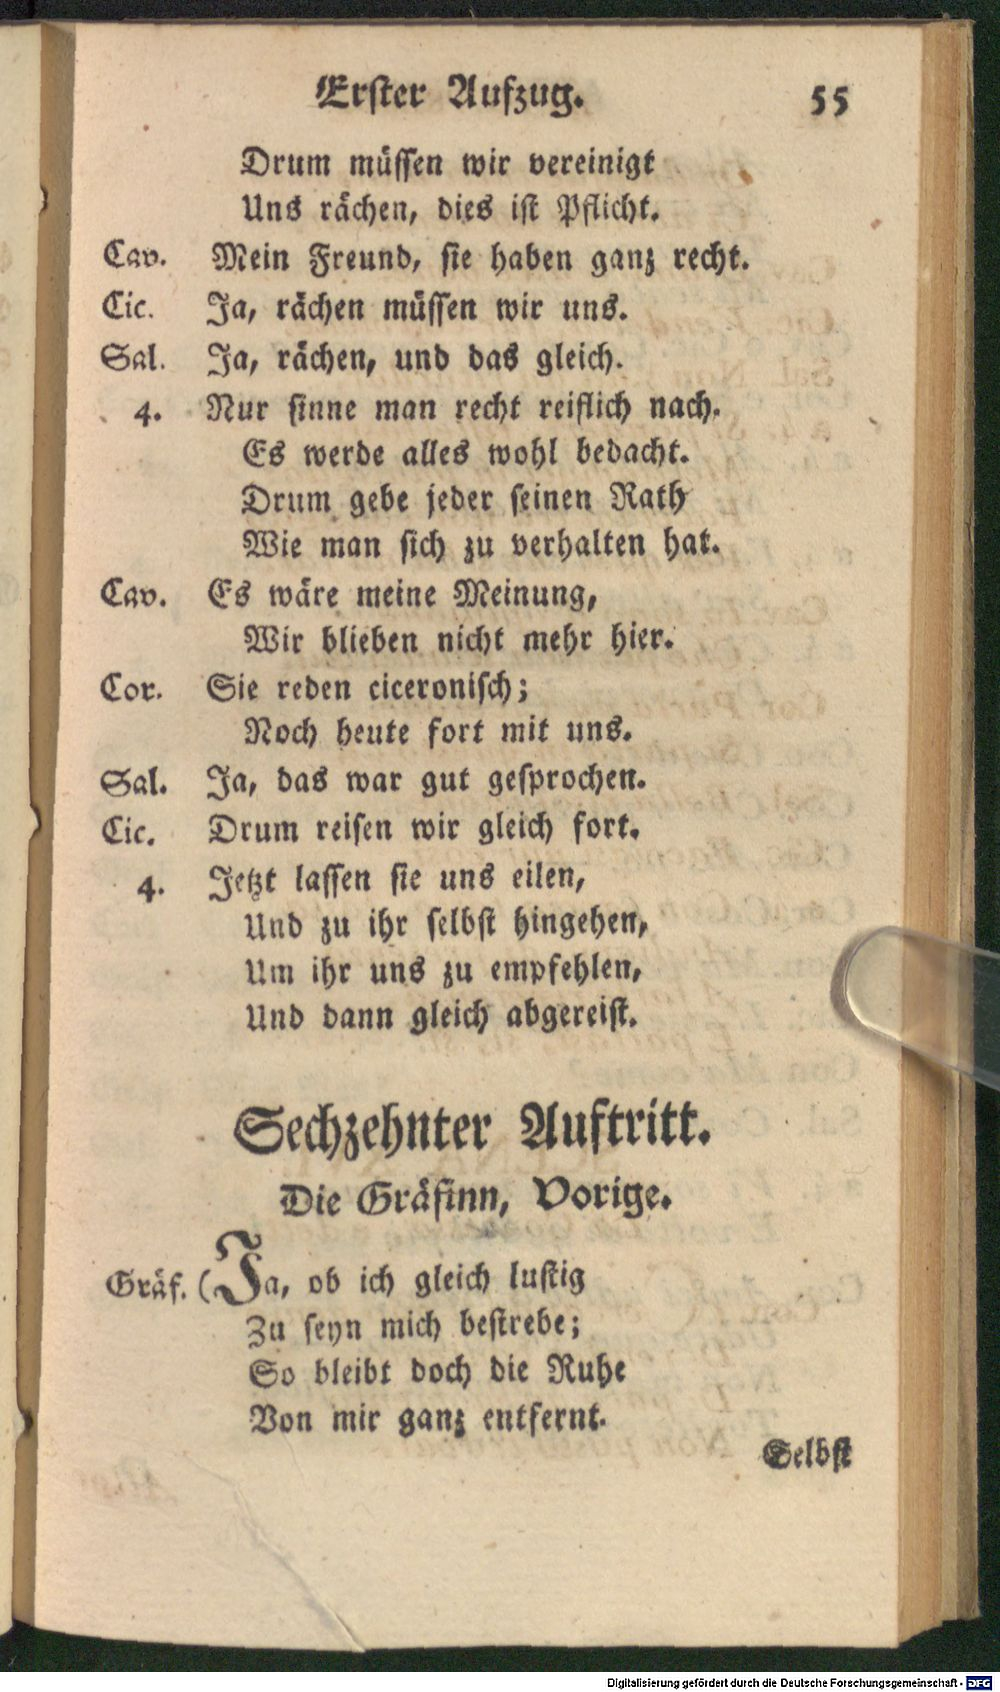 Erster Aufzug. 55
Drum müssen wir vereinigt
Uns rächen, dies ist Pflicht.
Cav. Mein Freund, sie haben ganz recht.
Cic. Ja, rächen müssen wir uns.
Sal. Ja, rächen, und das gleich.
4. Nur sinne man recht reiflich nach.
Es werde alles wohl bedacht.
Drum gebe jeder seinen Rath
Wie man sich zu verhalten hat.
Cav. Es wäre meine Meinung,
Wir blieben nicht mehr hier.
Cor. Sie reden ciceronisch;
Noch heute fort mit uns.
Sal. Ja, das war gut gesprochen.
Cic. Drum reisen wir gleich fort.
4. Jetzt lassen sie uns eilen,
Und zu ihr selbst hingehen,
Um ihr uns zu empfehlen,
Und dann gleich abgereist.
Sechzehnter Auftritt.
Die Gräfinn, Vorige.
Gräf. (Ja, ob ich gleich lustig
Zu seyn mich bestrebe;
So bleibt doch die Ruhe
Von mir ganz entfernt.
Selbst
Digitalisierung gefördert durch die Deutsche Forschungsgemeinschaft - DFG